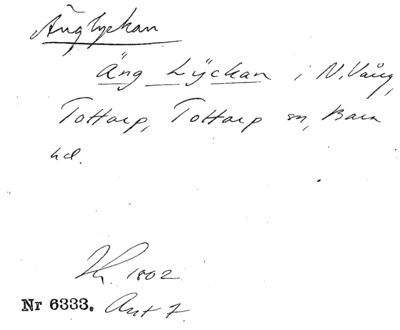 Änglyckan
Äng Lÿckan i N. Vång,
Tottarp, Tottarp sn, Bara
hd.
1802
Nr 6333. Akt 7